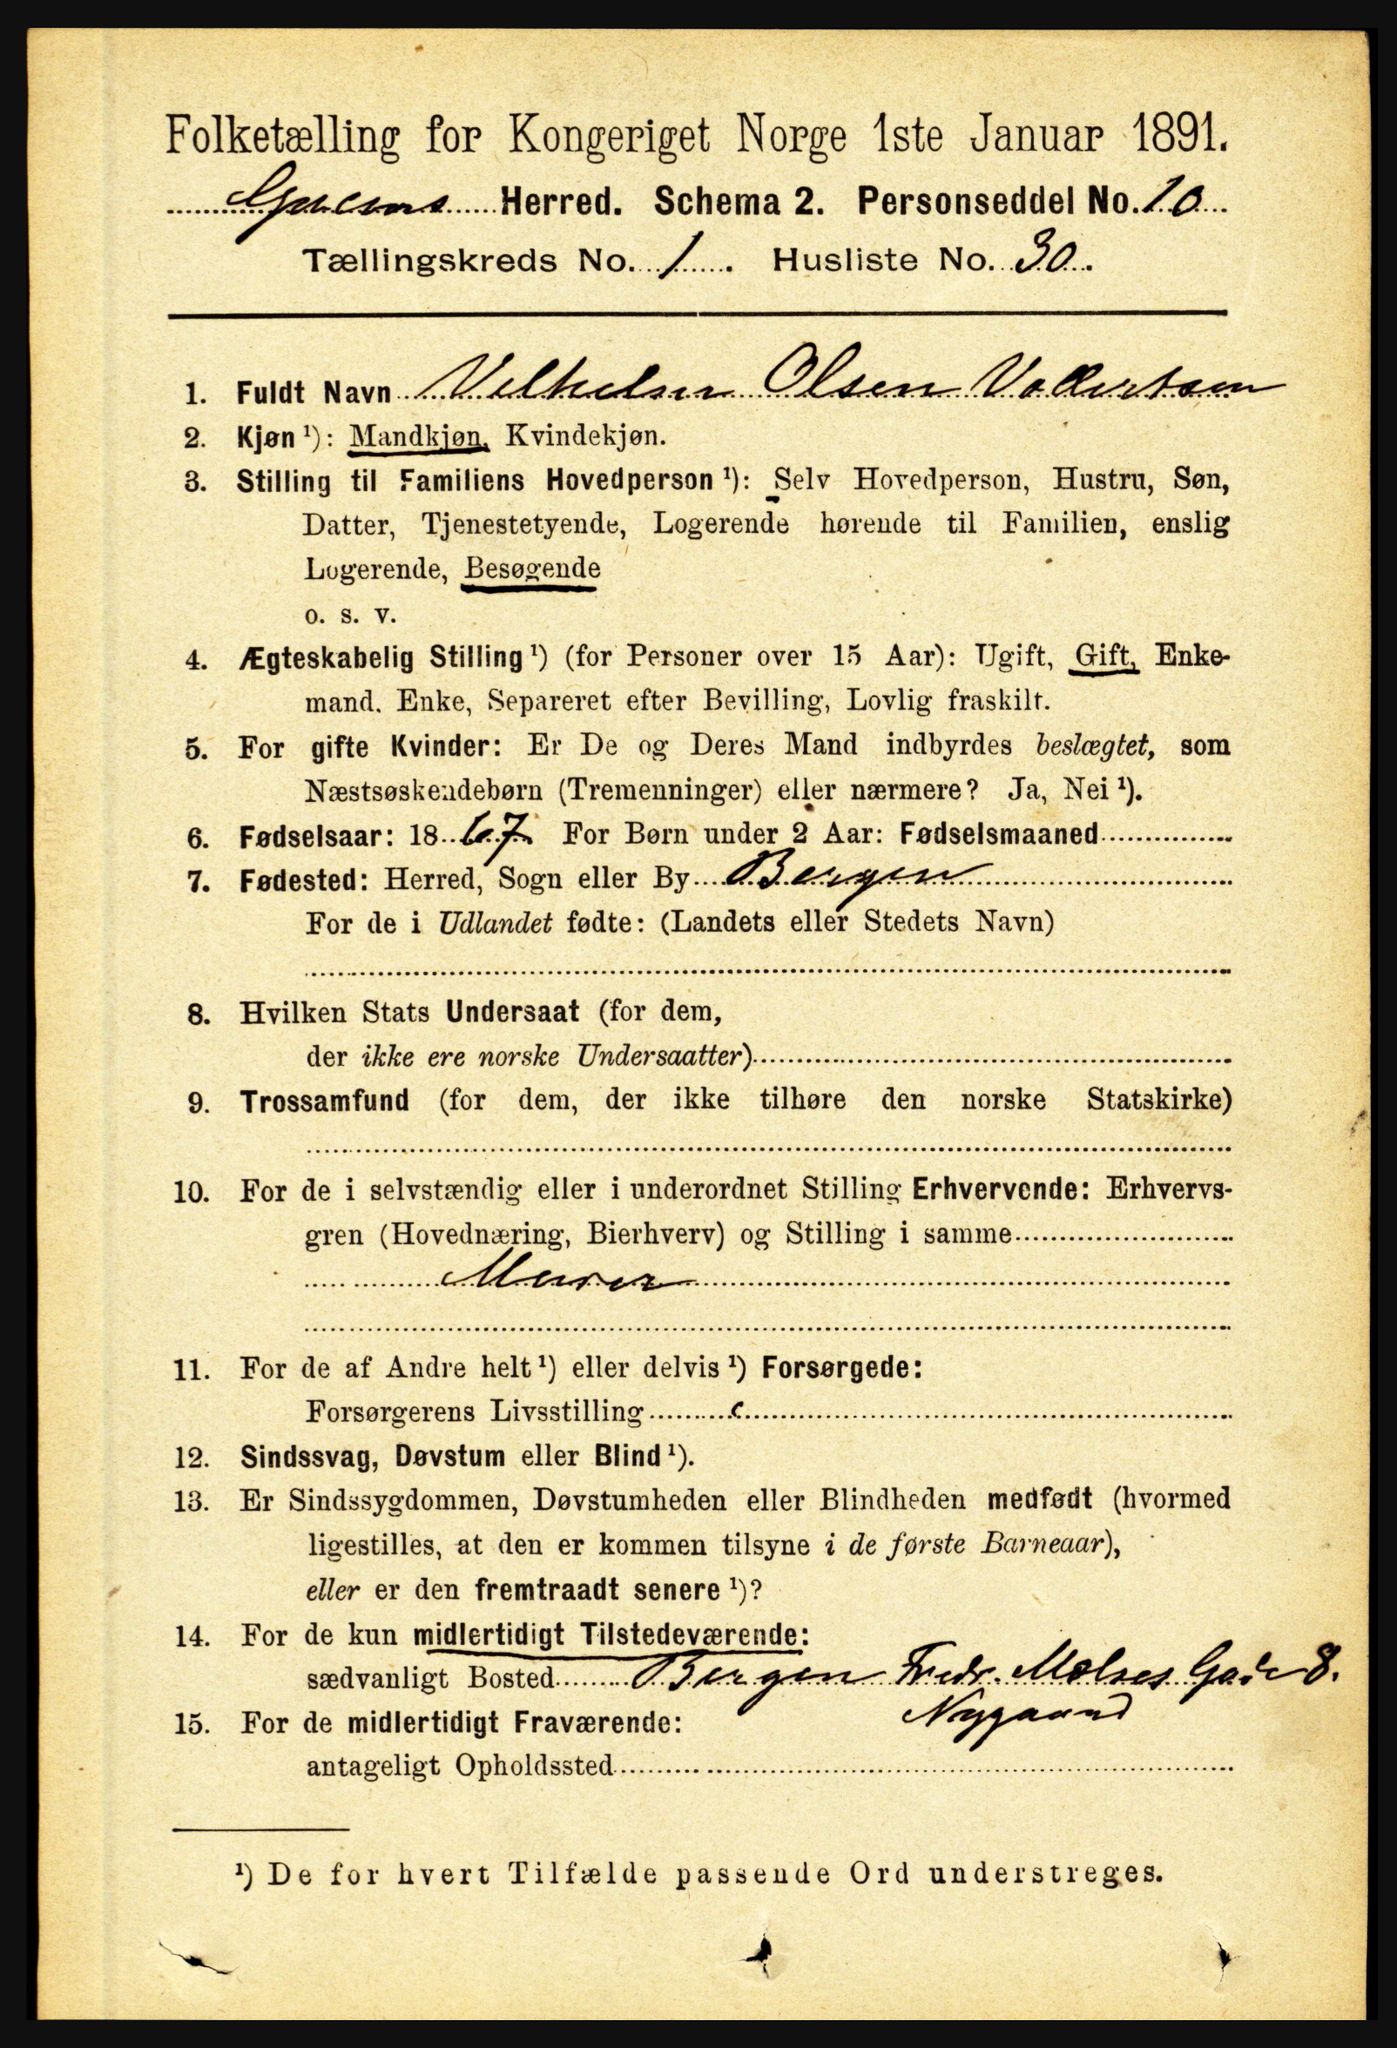 Folketælling for Kongeriget Norge 1ste Januar 1891.
Herred. Schema 2. Personseddel No. 10
Tællingskreds No. 1. Husliste No. 30.
1. Fuldt Navn Vilhelm Olsen Vollertsen
2. Kjøn ¹): Mandkjøn, Kvindekjøn.
3. Stilling til Familiens Hovedperson ¹): Selv Hovedperson, Hustru, Søn,
Datter, Tjenestetyende, Logerende hørende til Familien, enslig
Logerende, Besøgende
o. s. v.
4. Ægteskabelig Stilling ¹) (for Personer over 15 Aar): Ugift, Gift, Enke-
mand, Enke, Separeret efter Bevilling, Lovlig fraskilt.
5. For gifte Kvinder: Er De og Deres Mand indbyrdes beslægtet, som
Næstsøskendebørn (Tremenninger) eller nærmere? Ja, Nei ¹).
6. Fødselsaar: 1867 For Børn under 2 Aar: Fødselsmaaned
7. Fødested: Herred, Sogn eller By Bergen
For de i Udlandet fødte: (Landets eller Stedets Navn)
8. Hvilken Stats Undersaat (for dem,
der ikke ere norske Undersaatter)
9. Trossamfund (for dem, der ikke tilhøre den norske Statskirke)
10. For de i selvstændig eller i underordnet Stilling Erhvervende: Erhvervs-
gren (Hovednæring, Bierhverv) og Stilling i samme
Murer
11. For de af Andre helt ¹) eller delvis ¹) Forsørgede:
Forsørgerens Livsstilling
12. Sindssvag, Døvstum eller Blind ¹).
13. Er Sindssygdommen, Døvstumheden eller Blindheden medfødt (hvormed
ligestilles, at den er kommen tilsyne i de første Barneaar),
eller er den fremtraadt senere ¹)?
14. For de kun midlertidigt Tilstedeværende:
sædvanligt Bosted Bergen Fredr. Melses Gade 8.
Nygaard
15. For de midlertidigt Fraværende:
antageligt Opholdssted
¹) De for hvert Tilfælde passende Ord understreges.